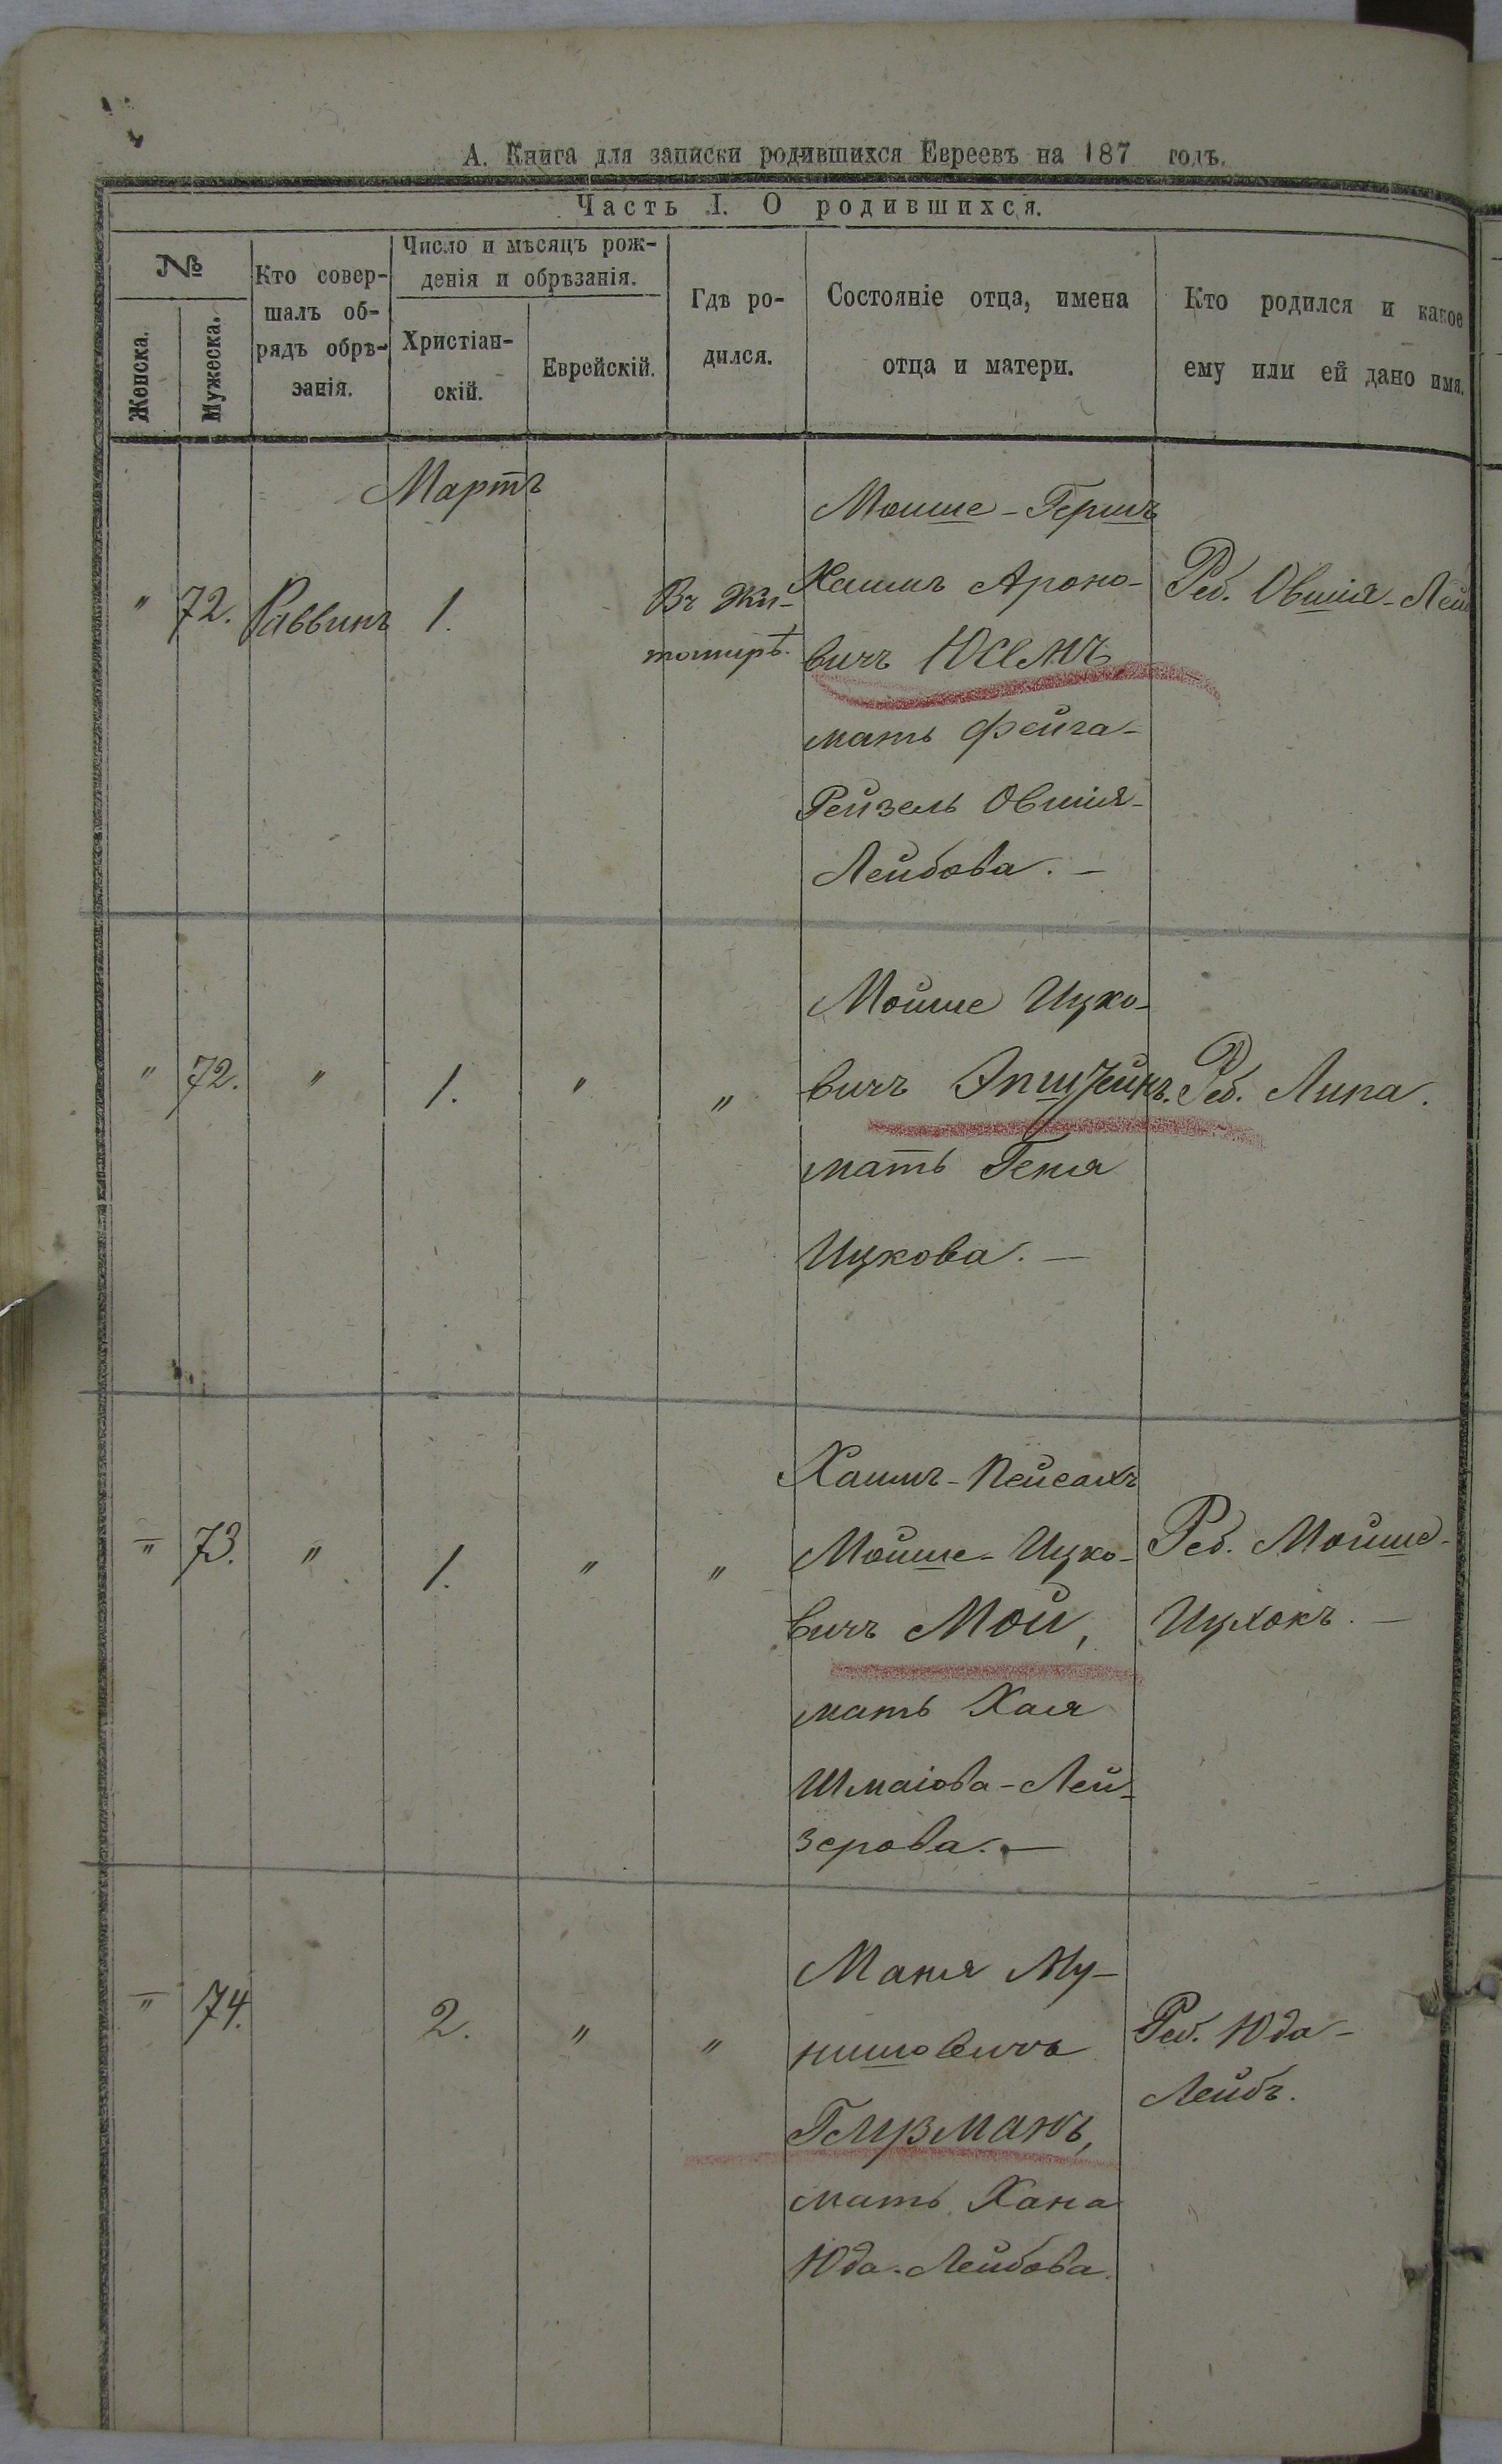 А. Книга для записки родившихся Евреевъ на 187 годъ.
Часть I. О родившихся.
№
Женска.
Мужеска.
Кто совер-
шалъ об-
рядъ обрѣ-
занія.
Число и мѣсяцъ рож-
денія и обрѣзанія.
Христіан-
скій.
Еврейскій.
Гдѣ ро-
дился.
Состояніе отца, имена
отца и матери.
Кто родился и какое
ему или ей дано имя.
Мартъ
" 72. Раввинъ 1.
Въ Жи-
томирѣ.
Мошше-Гершъ
Хаимъ Ароно-
вичъ Юсимъ
мать Фейга-
Рейзель Овшія-
Лейбова. —
Реб. Овшія-Лей
" 72. " 1. " "
Мойше Ицко-
вичъ Эпштейнъ.
мать Геня
Ицкова. —
Реб. Липа.
" 73. " 1. " "
Хаимъ-Пейсахъ
Мойше-Ицко-
вичъ Мой,
мать Хая
Шмаіова-Лей-
зерова. —
Реб. Мойше-
Ицхокъ. —
" 74. 2. " "
Маня Му-
нишовичъ
мать Хана
Юда-Лейбова.
Реб. Юда-
Лейбъ.